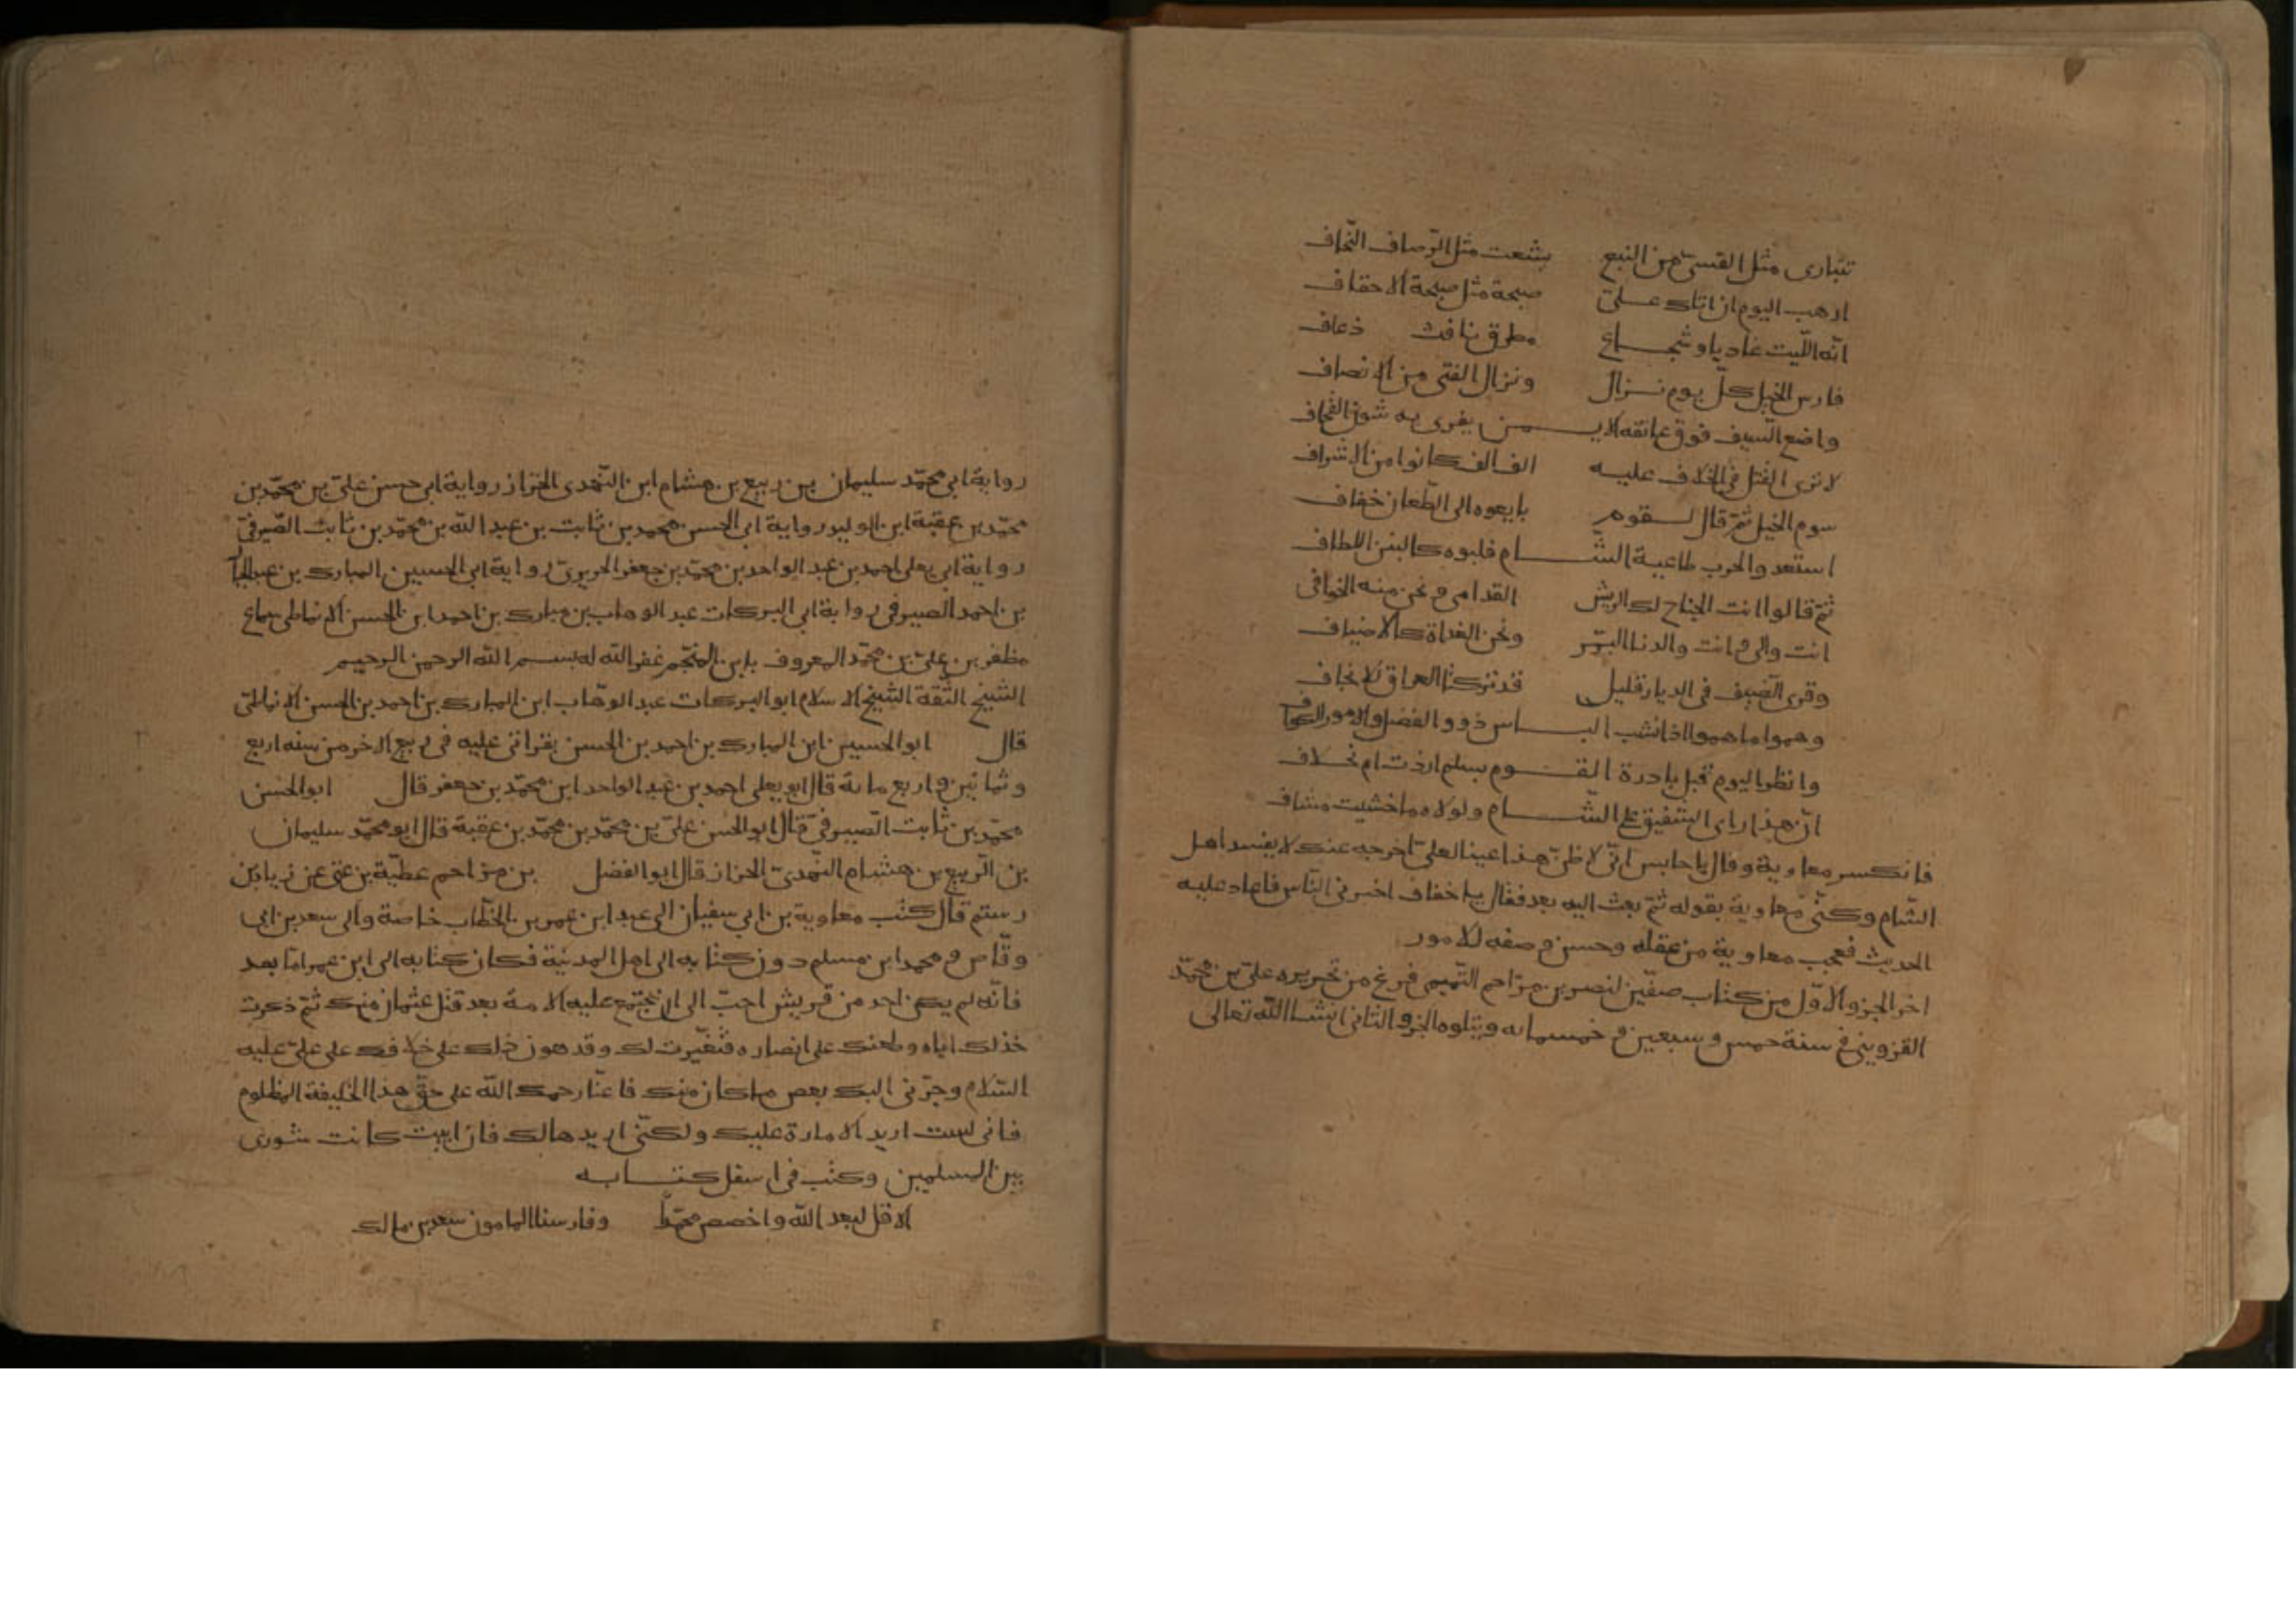 تتبارى مثل القسىّ من النبع بشعث مثل الرّصاف النحاف
ارهب اليوم ان اتاك علىّ صيحة مثل صيحة الاحقاف
انّه اللّيث غاديا وشجاع مطرق نافث ذعاف
فارس الخيل كلّ يوم نزال ونزال الفتى من الانصاف
واضع السّيف فوق عاتقه الايمن يفرى به شون القحاف
لا ترى القتل فى الخلاف عليه الف الف كانوا من الاشراف
سوم الخيل ثمّ قال لقوم بايعوه الى الطّعان خفاف
استعدوا لحرب طاغية الشّام فلبوه كالبنين اللطاف
ثمّ قالوا انت الجناح لك الريش القدامى ونحن منه الخوافى
انت والى وانت والدنا البرّ ونحن الغداة كالاضياف
وقرى الضّيف فى الديار قليل قد تركنا العراق للانحاف
وهموا ما هموا اذا نشب الباس ذوو الفضل والامور الكواف
وانظر اليوم قبل بادرة القوم بسلم اردت ام بخلاف
انّ هذا راى الشفيق على الشّام ولولاه ما خشيت مشاف
فانكسر معاوية وقال يا حابس انّى لاظنّ هذا عينا لعلىّ اخرجه عنك لا يفسد اهل
الشّام وكنّى معاوية بقوله ثمّ بعث اليه بعد فقال يا خفاف اخبرنى النّاس فاعاد عليه
الحديث فعجب معاوية من عقله وحسن وصفه للامور
اخر الجزو الاوّل من كتاب صفّين لنصر بن مزاحم التّميمى فرغ من تحريره علىّ بن محمّد
القزوينى فى سنة خمس وسبعين وخمسمائه ويتلوه الجزو الثانى انشا الله تعالى
رواية ابى محمّد سليمان بن ربيع بن هشام ابن النّهدى الخزاز رواية ابى حسن علىّ بن محمّد بن
محمّد بن عقبة ابن الوليد رواية ابى الحسن محمد بن ثابت بن عبد الله بن محمّد بن ثابت الصّيرفىّ
رواية ابى يعلى احمد بن عبد الواحد بن محمّد بن جعفر الحريرىّ رواية ابى الحسين المبارك بن عبد الجبا
بن احمد الصيرفى رواية ابى البركات عبد الوهاب بن مبارك بن احمد ابن الحسن الانماطى سماع
مظفر بن علىّ بن محمّد المعروف بابن المنجّم غفر الله له بسم الله الرحمن الرحيم
الشّيخ الثّقة الشّيخ الاسلام ابو البركات عبد الوهّاب ابن المبارك بن احمد بن الحسن الانماطىّ
قال ابو الحسين ابن المبارك بن احمد بن الحسن بقراتى عليه فى ربيع الاخر من سنه اربع
وثمانين واربع مائة قال ابو يعلى احمد بن عبد الواحد ابن محمّد بن جعفر قال ابو الحسن
محمّد بن ثابت الصّيرفىّ قال ابو الحسن علىّ بن محمّد بن محمّد بن عقبة قال ابو محمّد سليمان
بن الرّبيع بن هشام النّهدىّ الخزاز قال ابوا لفضل بن مزاحم عطيّة بن غنى عن زياد بن
رستم قال كتب معاوية بن ابى سفيان الى عبد ابن عمر بن الخطّاب خاصة والى سعد بن ابى
وقّاص و محمد ابن مسلم دون كتابه الى اهل المدنية فكان كتابه الى ابن عمر امّا بعد
فانّه لم يكن احد من قريش احبّ الى ان تجتمع عليه الامة بعد قتل عثمان منك ثمّ ذكرت
خذلك اياه وطعنك على انصاره فتغيّرت لك وقد هون ذلك على خلافك على علىّ عليه
السّلام وجرّنى اليك بعض ما كان منك فاعنّا رحمك الله على حقّ هذا الخليفة المظلوم
فانى لست اريد الامارة عليك ولكنّى اريدها لك فان ابيت كانت شورى
بين المسلمين وكتب فى اسفل كتابه
الا قل لبعد الله واخصص محمّداً وفارسنا المامون سعد بن مالك